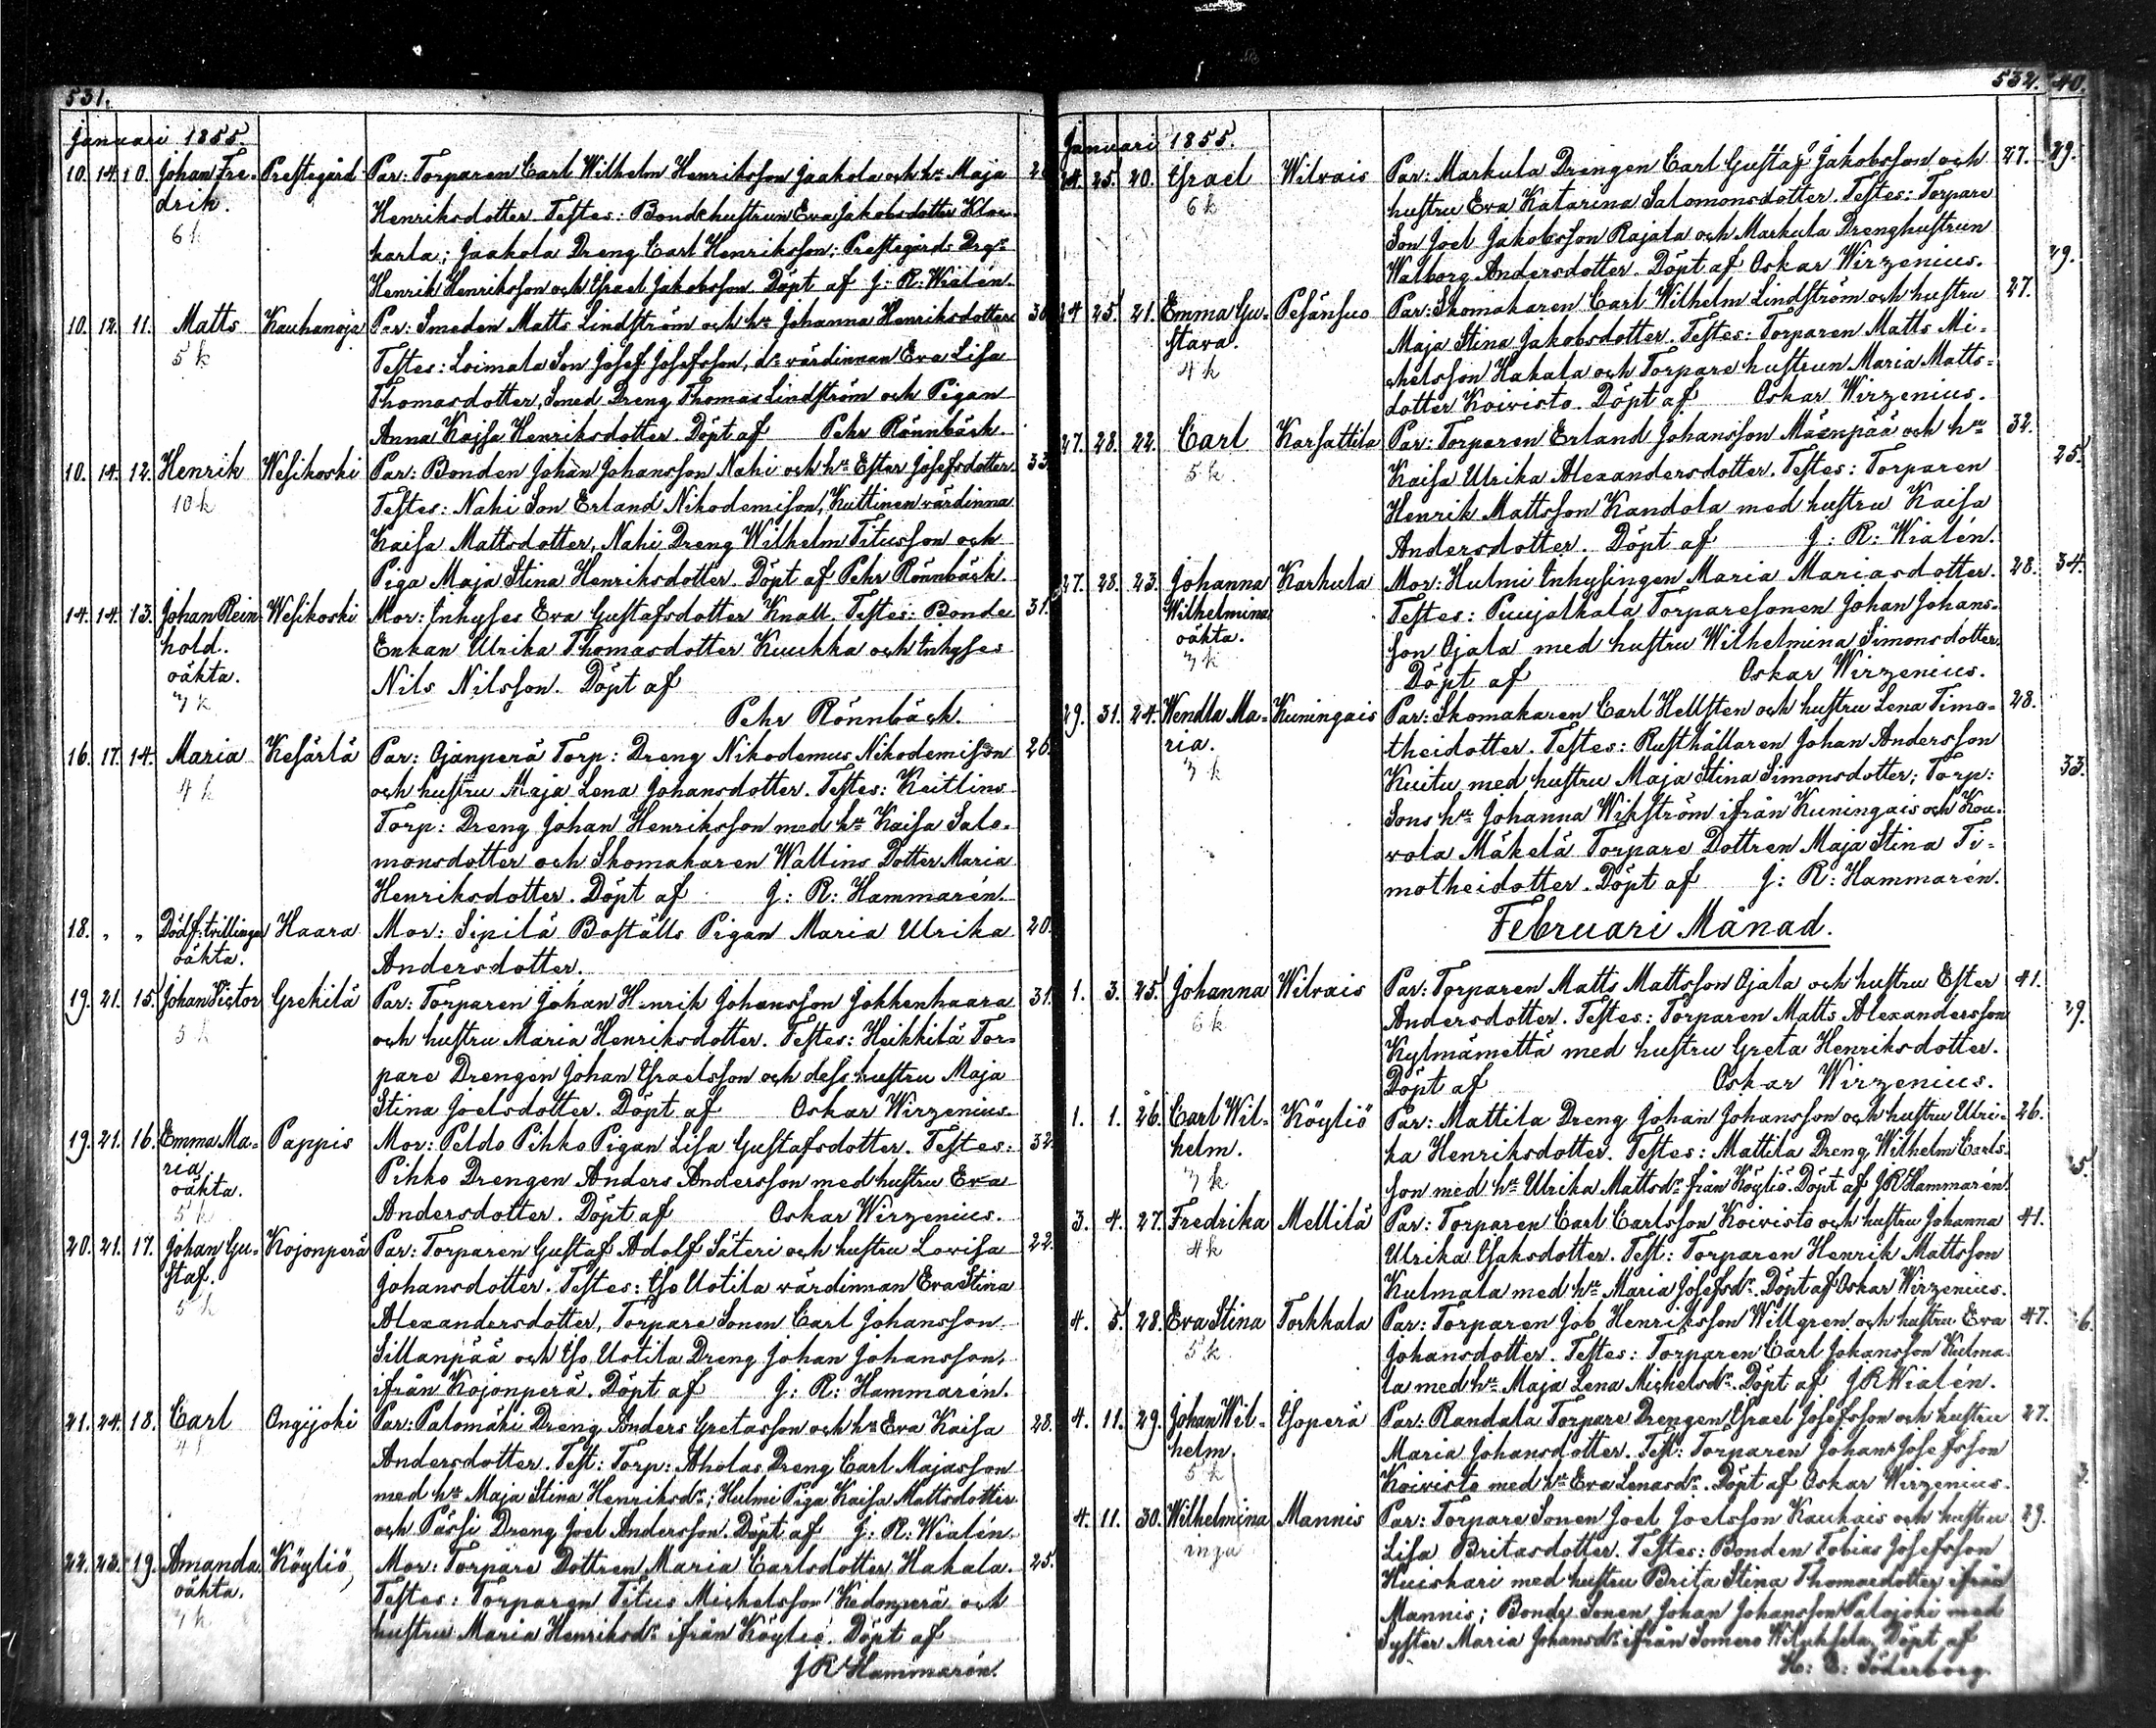 531.
Januari 1855.
10. 14. 10. Johan Fre- Prestegård Par: Torparen Carl Wilhelm Henriksson Jaakola och hu Maja
drik. Henriksdotter. Testes: Bondehustrun Eva Jakobsdotter Kloc-
6 k karla; Jaakola Dreng Carl Henriksson; Prestegårds Drgr
Henrik Henriksson och Israel Jakobsson. Döpt af J: R: Wialén.
10. 12. 11. Matts Kauhanoja Par: Smeden Matts Lindström och hu Johanna Henriksdotter 30
5 k Testes: Loimala Son Josef Josefsson, do värdinnan Eva Lisa
Thomasdotter, Smed Dreng Thomas Lindström och Pigan
Anna Kajsa Henriksdotter. Döpt af Pehr Rönnbäck.
10. 14. 12. Henrik Wesikoski Par: Bonden Johan Johansson Nahi och hu Ester Josefsdotter. 33
10 k Testes: Nahi Son Erland Nikodemisson, Kuttinen värdinna
Kaisa Mattsdotter, Nahi Dreng Wilhelm Titusson och
Piga Maja Stina Henriksdotter. Döpt af Pehr Rönnbäck.
14. 14. 13. Johan Rein Wesikoski Mor: Inhyses Eva Gustafsdotter Knall. Testes: Bonde 31.
hold. Enkan Ulrika Thomasdotter Kuukka och Inhyses
oäkta. Nils Nilsson. Döpt af
7 k Pehr Rönnbäck.
16. 17. 14. Maria Kesärlä Par: Ojanperä Torp: Dreng Nikodemus Nikodemisson 26
4 k och hustru Maja Lena Johansdotter. Testes: Keitlins
Torp: Dreng Johan Henriksson med hu Kaisa Salo-
monsdotter och Skomakaren Wallins Dotter Maria
Henriksdotter. Döpt af J: R: Hammarén.
18. " " Dödf: tvillingar Haara Mor: Sipilä Boställs Pigan Maria Ulrika 20.
oäkta. Andersdotter.
19. 21. 15. Johan Victor Grekilä Par: Torparen Johan Henrik Johansson Jokkenhaara 31.
5 k och hustru Maria Henriksdotter. Testes: Heikkilä Tor-
pare Drengen Johan Israelsson och dess hustru Maja
Stina Joelsdotter. Döpt af Oskar Wirzenius.
19. 21. 16. Emma Ma- Pappis Mor: Peldo Pihko Pigan Lisa Gustafsdotter. Testes: 32.
ria. Pihko Drengen Anders Andersson med hustru Eva
oäkta. Andersdotter. Döpt af Oskar Wirzenius.
5 k
20. 21. 17. Johan Gu- Kojonperä Par: Torparen Gustaf Adolf Säteri och hustru Lovisa 22.
staf. Johansdotter. Testes: Iso Uotila värdinnan Eva Stina
5 k Alexandersdotter, Torpare Sonen Carl Johansson
Sillanpää och Iso Uotila Dreng Johan Johansson,
ifrån Kojonperä. Döpt af J: R: Hammarén.
21. 24. 18. Carl Ongijoki Par: Palomäki Dreng Anders Gretasson och hu Eva Kaisa 28.
4 k Andersdotter. Test: Torp: Aholas Dreng Carl Majasson
med hu Maja Stina Henriksdr; Hulmi Piga Kaisa Mattsdotter
och Pässi Dreng Joel Andersson. Döpt af J: R: Wialén.
22. 23. 19. Amanda Köyliö, Mor: Torpare Dottren Maria Carlsdotter Hakala. 25.
oäkta. Testes: Torparen Titus Michelsson Kedonperä och
7 k hustru Maria Henriksdr ifrån Köyliö. Döpt af
J R Hammarén.
532. 40.
Januari 1855.
24. 25. 20. Israel Wilvais Par: Markula Drengen Carl Gustaf Jakobsson och 27. 29.
6 k hustru Eva Katarina Salomonsdotter. Testes: Torpare
Son Joel Jakobsson Rajala och Markula Drenghustrun
Walborg Andersdotter. Döpt af Oskar Wirzenius. 29.
24 25. 21. Emma Gu- Pesänsuo Par: Skomakaren Carl Wilhelm Lindström och hustru 27.
stava. Maja Stina Jakobsdotter. Testes: Torparen Matts Mi-
4 k chelsson Hakala och Torpare hustrun Maria Matts-
dotter Koivisto. Döpt af Oskar Wirzenius.
27. 28. 22. Carl Karsattila Par: Torparen Erland Johansson Mäenpää och hu 32.
5 k. Kaisa Ulrika Alexandersdotter. Testes: Torparen 25.
Henrik Mattsson Kandola med hustru Kaisa
Andersdotter. Döpt af J: R: Wialén.
27. 28. 23. Johanna Karhula Mor: Hulmi Inhysingen Maria Mariasdotter. 28. 34.
Wilhelmina Testes: Puujalkala Torparesonen Johan Johans-
oäkta. son Ojala med hustru Wilhelmina Simonsdotter.
7 k Döpt af Oskar Wirzenius.
29. 31. 24. Wendla Ma- Kuningais Par: Skomakaren Carl Hellsten och hustru Lena Timo- 28.
ria. theidotter. Testes: Rusthållaren Johan Andersson
3 k Kuitu med hustru Maja Stina Simonsdotter; Torp: 33.
Sons hu Johanna Wikström ifrån Kuningais och Kou-
vola Mäkelä Torpare Dottren Maja Stina Ti-
motheidotter. Döpt af J: R: Hammarén.
Februari Månad.
1. 3. 25. Johanna Wilvais Par: Torparen Matts Mattsson Ojala och hustru Ester 41.
6 k Andersdotter. Testes: Torparen Matts Alexandersson 29.
Kylmämettä med hustru Greta Henriksdotter.
Döpt af Oskar Wirzenius.
1. 1. 26. Carl Wil- Köyliö Par: Mattila Dreng Johan Johansson och hustru Ulri- 26.
helm. ka Henriksdotter. Testes: Mattila Dreng Wilhelm Carls-
7 k son med hu Ulrika Mattsdr från Köyliö. Döpt af J R Hammarén.
3. 4. 27. Fredrika Mellilä Par: Torparen Carl Carlsson Koivisto och hustru Johanna 41.
4 k Ulrika Isaksdotter. Test: Torparen Henrik Mattsson
Kulmala med hu Maria Josefsdr. Döpt af Oskar Wirzenius.
4. 5. 28. Eva Stina Torkkala Par: Torparen Job Henriksson Willgren och hustru Eva 47. 6.
5 k Johansdotter. Testes: Torparen Carl Johansson Kulma-
la med hu Maja Lena Michelsdr. Döpt af J R Wialén.
4. 11. 29. Johan Wil- Isoperä Par: Randala Torpare Drengen Israel Josefsson och hustru 27.
helm. Maria Johansdotter. Test: Torparen Johan Josefsson
5 k Koivisto med hu Eva Lenasdr. Döpt af Oskar Wirzenius. 3.
4. 11. 30. Wilhelmina Mannis Par: Torpare Sonen Joel Joelsson Kauhais och hustru 29.
inga Lisa Britasdotter. Testes: Bonden Tobias Josefsson
Huiskari med hustru Brita Stina Thomasdotter ifrån
Mannis; Bonde Sonen Johan Johansson Palojoki med
Syster Maria Johansdr ifrån Somero Wiluksela. Döpt af
H: E: Söderborg.